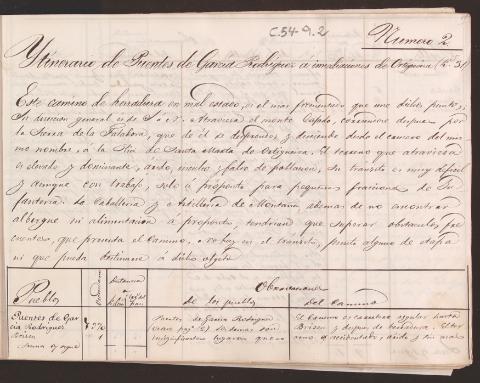 C.54-9.2
Numero 2.
Ytinerario de Puentes de Garcia Rodriguez á inmediaciones de Ortigueira (K. 31)
Este camino de herradura en mal estado, es el mas frecuentado que une dichos puntos,
Su direccion general es de S. á N. Atraviesa el monte Capado, corriendose despues por
la Sierra de la Faladora, que de él se desprende y desciende desde el caserio del mis
mo nombre, á la Ria de Santa Marta de Ortigueira. El terreno que atraviesa
es elevado y dominante, arido, inculto y falto de poblacion, su transito es muy dificil
y aunque con trabajo, solo á proposito para pequeñas fracciones de In
fanteria. La Caballeria y Artilleria de Montaña ademas de no encontrar
albergue ni alimentacion á proposito, tendrian que superar obstaculos fre
cuentes, que presenta el camino, no hay en el transito, punto alguno de etapa
ni que pueda destinarse á dicho objeto
Pueblos
Distancia
Observaciones
De los pueblos
Del Camino
Puentes de Gar
cia Rodriguez
270
Puentes de Garcia Rodriguez
son
insignificantes lugares que
El Camino es carretera regular hasta
y despues de herradura. El ter
reno es accidentado, arido y sin mas